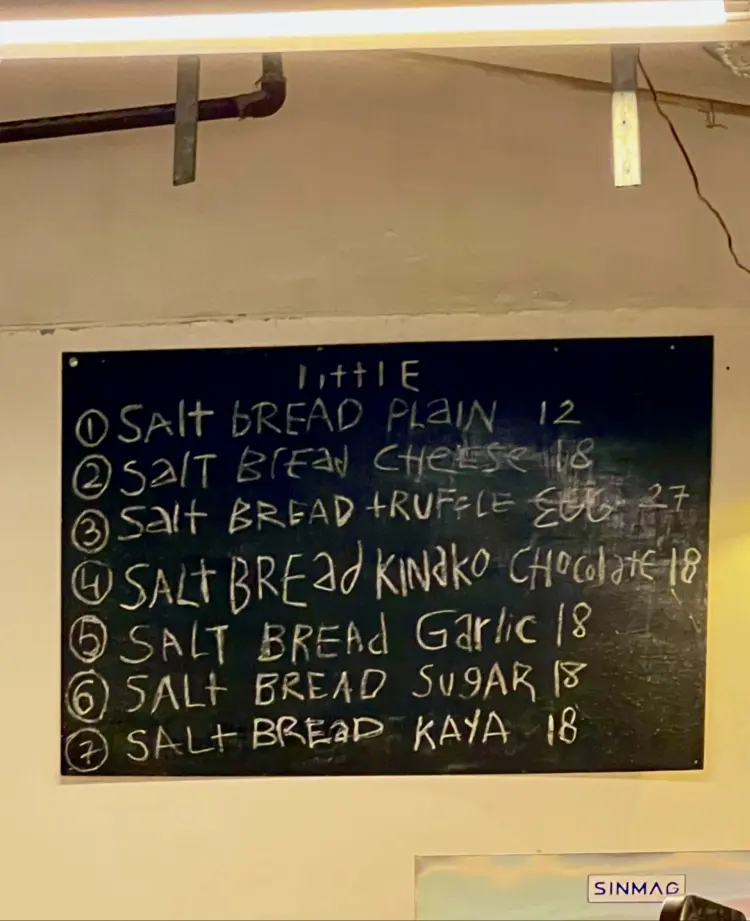 little
① SAlt bREAD PLaIN 12
② SalT BrEad CHeESe 18
③ Salt BREAD tRUFFLE EGG 27
④ SALt BREad KINaKO CHOColatE 18
⑤ SALT BREAd GarLic 18
⑥ SALt BREAD SUgAR 18
⑦ SALt BREaD KAYA 18
SINMAG